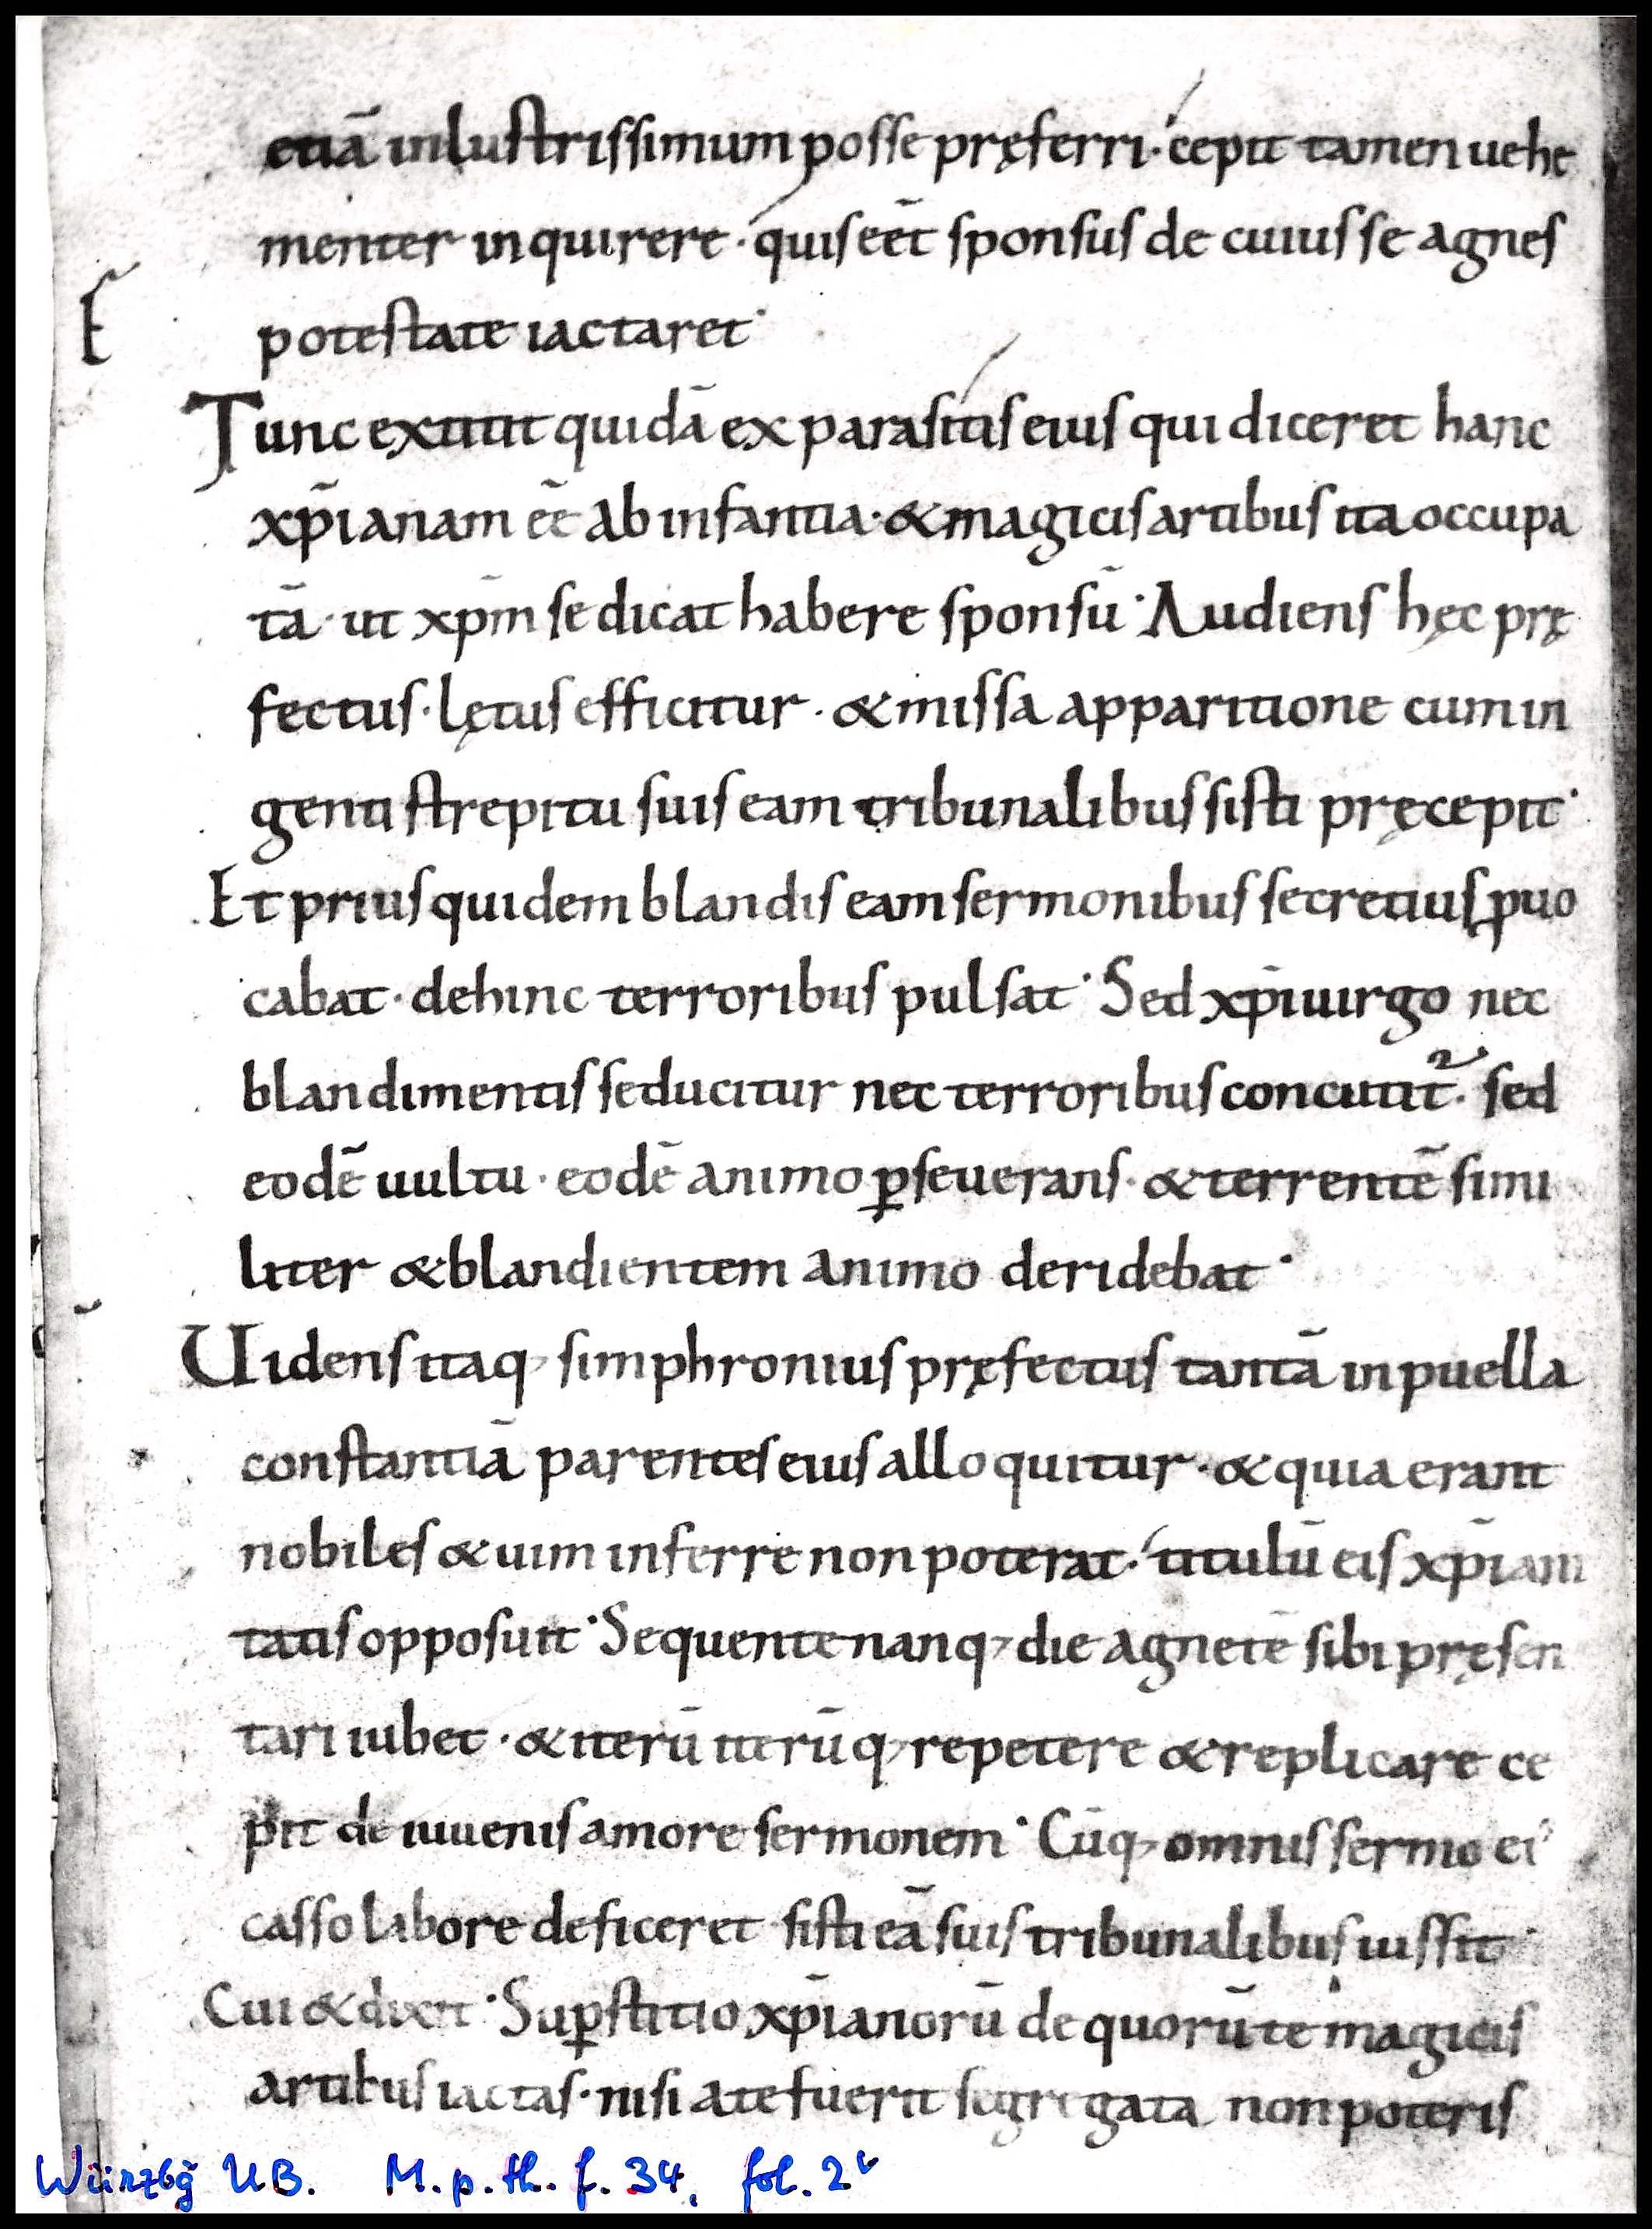 etiā inlustrissimum posse pręferri· cepit tamen uehe
menter inquirere· quis eēt sponsus de cuius se agnes
potestate iactaret·
Tunc extitit quidā ex parasitis eius qui diceret hanc
xp̄ianam eē ab infantia· & magicis artibus ita occupa
tā· ut xp̄m se dicat habere sponsū· Audiens hęc prę
fectus· lętus efficitur· & missa apparitione cum in
genti strepitu suis eam tribunalibus sisti pręcepit·
Et prius quidem blandis eam sermonibus secretius ꝓuo
cabat· dehinc terroribus pulsat· Sed xp̄i uirgo nec
blandimentis seducitur nec terroribus concutit᷑· sed
eodē uultu· eodē animo ꝑseuerans· & terrentē simi
liter & blandientem animo deridebat·
Uidens itaq; simphronius pręfectus tantā in puella
constantiā parentes eius alloquitur· & quia erant
nobiles & uim inferre non poterat· titulū eis xp̄iani
tatis opposuit· Sequente nanq; die agnetē sibi pręsen
tari iubet· & iterū iterūq; repetere & replicare ce
pit de iuuenis amore sermonem· Cūq; omnis sermo ei'
casso labore deficeret sisti eā suis tribunalibus iussit·
Cui & dixit· Suꝑstitio xp̄ianorū de quorū te magicis
artibus iactas· nisi a te fuerit segregata non poteris
E
Würzbg UB. M.p.th.f. 34, fol. 2v